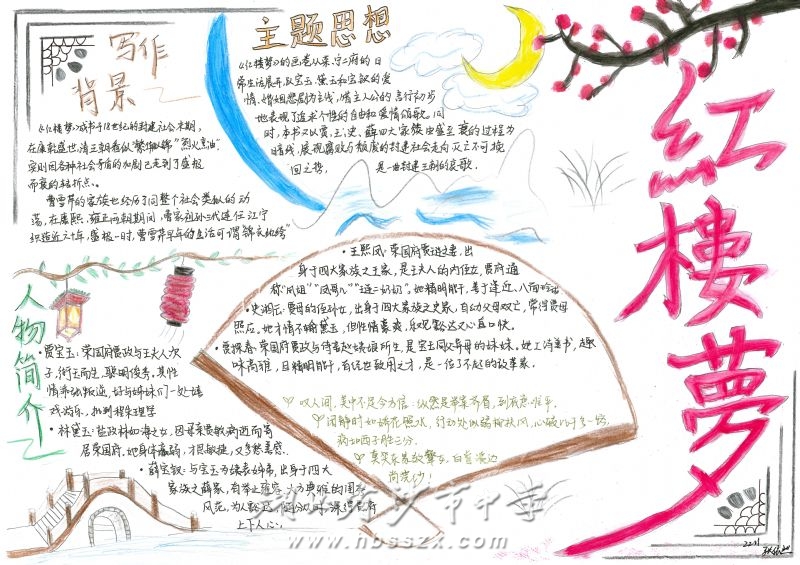 写作
背景
《红楼梦》成书于18世纪的封建社会末期，
在康乾盛世，清王朝看似"繁花似锦""烈火烹油"
实则因各种社会矛盾的加剧已走到了盛极
而衰的转折点。
曹雪芹的家族也经历了同整个社会类似的动
荡，在康熙、雍正两朝期间，曹家祖孙三代连任江宁
织造近六十年，盛极一时，曹雪芹早年的生活可谓"锦衣纨绔"
主题思想
《红楼梦》的画卷从荣、宁二府的日
常生活展开，以宝玉、黛玉和宝钗的爱
情、婚姻悲剧为主线，借主人公的言行初步
地表现了追求个性的自由和爱情颂歌。同
时，本书又以贾、王、史、薛四大家族由盛至衰的过程为
暗线，展现腐败与极度的封建社会走向灭亡不可挽
回之势，是一曲封建王朝的哀歌。
紅樓夢
人物简介
贾宝玉：荣国府贾政与王夫人次
子，衔玉而生，聪明俊秀，其性
情乖张叛逆，好与姊妹们一处嬉
戏游乐，批判程朱理学
林黛玉：盐政林如海之女，因母亲贾敏病逝而寄
居荣国府，她身体羸弱，才思敏捷，又多愁善感。
薛宝钗：与宝玉为缘素姊弟，出身于四大
家族之薛家，有举止雍容、大方典雅的闺秀
风范，为人豁达
上下人心
王熙凤：荣国府贾琏之妻，出
身于四大家族之王家，是王夫人的内侄女，贾府通
称"凤姐""凤哥儿""琏二奶奶"。她精明能干，善于逢迎，八面玲珑
史湘云：贾母的侄孙女，出身于四大家族之史家，自幼父母双亡，常得贾母
照应。她才情不输黛玉，但性情豪爽，乐观豁达又心直口快。
贾探春：荣国府贾政与侍妾赵姨娘所生，是宝玉同父异母的妹妹，她工诗善书，趣
味高雅，且精明能干，有经世致用之才，是一位了不起的改革家。
叹人间，美中不足今方信：纵然是举案齐眉，到底意难平。
闲静时如姣花照水，行动处似弱柳扶风，心较比干多一窍，
病如西子胜三分。
www.hbsszx.com
22.11